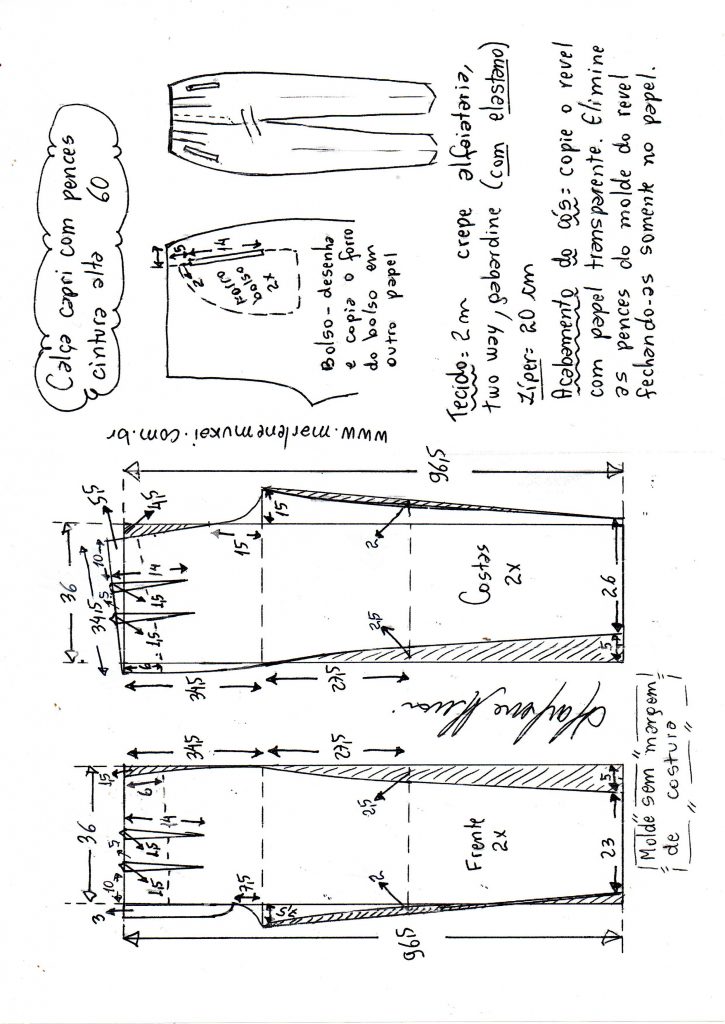 Calça capri com pences
cintura alta 60
1,5
14
2,5
Forro
bolso
2x
Bolso-desenha
e copia o forro
do bolso em
outro papel
Tecido = 2 m crepe alfaiataria,
two way, gabardine (com elastano)
Zíper = 20 cm
Acabamento do cós = copie o revel
com papel transparente. Elimine
as pences do molde do revel
fechando-as somente no papel.
www.marlenemukai.com.br
36
34,5
10
5,5
4,5
5
1,5
1,5
14
6
15
15
34,5
27,5
2
2,5
Costas
2x
26
5
96,5
36
3
10
5
1,5
1,5
1,5
14
6
7,5
34,5
27,5
2
2,5
Frente
2x
23
5
96,5
Molde sem margem
de costura